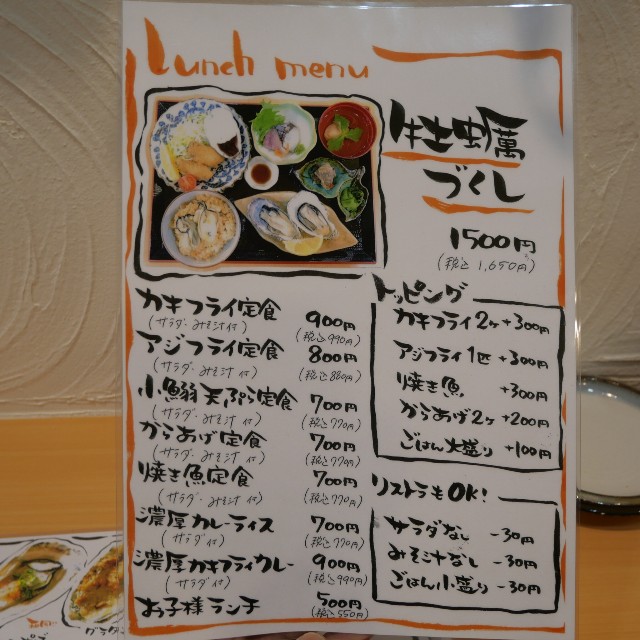 Lunch menu
牡蠣
づくし
1500円
(税込 1,650円)
カキフライ定食 900円
(サラダ・みそ汁付) (税込990円)
アジフライ定食 800円
(サラダ・みそ汁付) (税込880円)
小鰯天ぷら定食 700円
(サラダ・みそ汁付) (税込770円)
からあげ定食 700円
(サラダ・みそ汁付) (税込770円)
焼き魚定食 700円
(サラダ・みそ汁付) (税込770円)
濃厚カレーライス 700円
(サラダ付) (税込770円)
濃厚カキフライカレー 900円
(サラダ付) (税込990円)
お子様ランチ 500円
(税込550円)
トッピング
カキフライ2ケ +300円
アジフライ1匹 +300円
焼き魚 +300円
からあげ2ケ +200円
ごはん大盛り +100円
リストラもOK!
サラダなし -30円
みそ汁なし -30円
ごはん小盛り -30円
グラタン